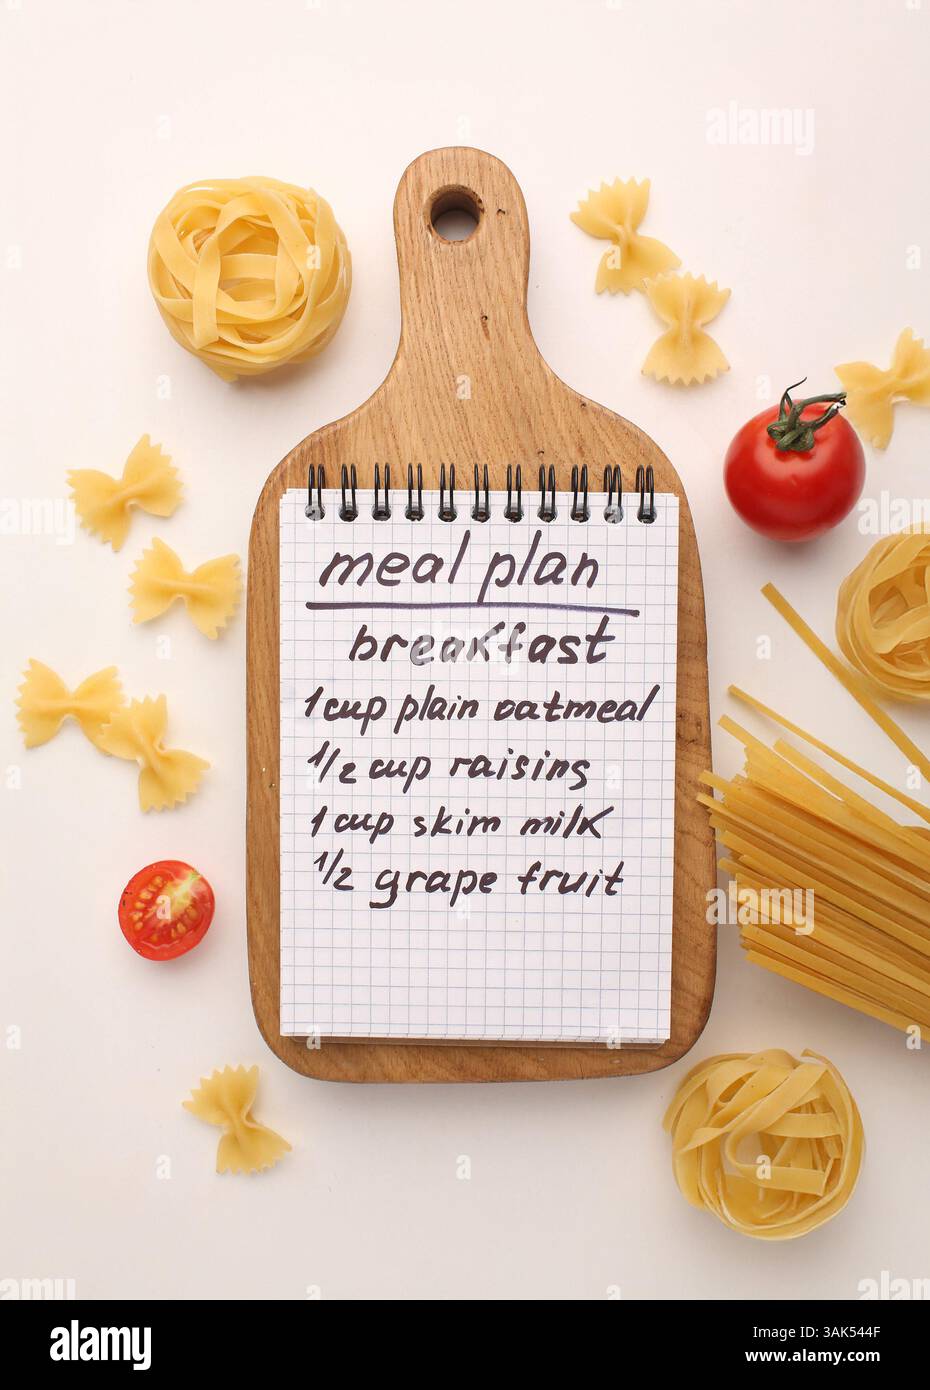 alamy
meal plan
breakfast
1 cup plain oatmeal
1/2 cup raising
1 cup skim milk
1/2 grape fruit
alamy
alamy
alamy
alamy
Image ID: 3AK544F
www.alamy.com